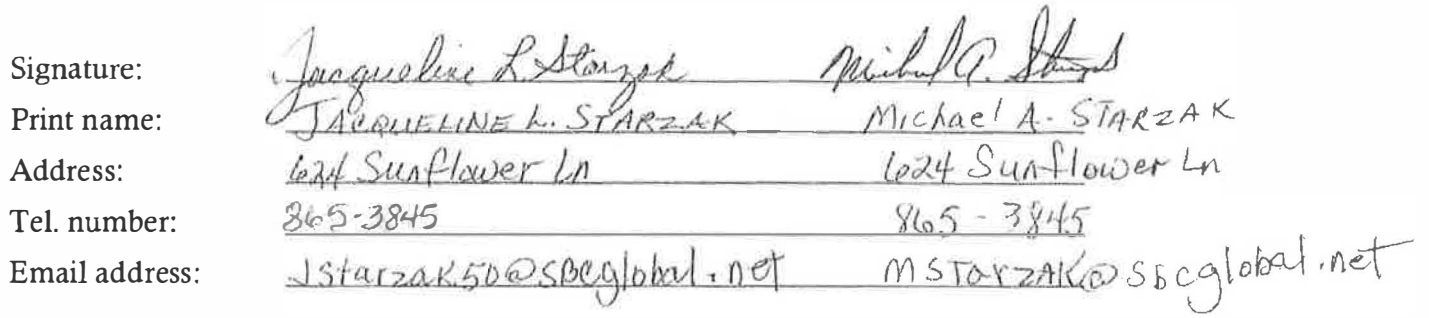 Signature: Jacqueline L Starzak Michael A. Starzak
Print name: JACQUELINE L. STARZAK Michael A. STARZAK
Address: 624 Sunflower Ln 624 Sunflower Ln
Tel. number: 865-3845 865-3845
Email address: JStarzak50@sbcglobal.net MSTarzAK@sbcglobal.net